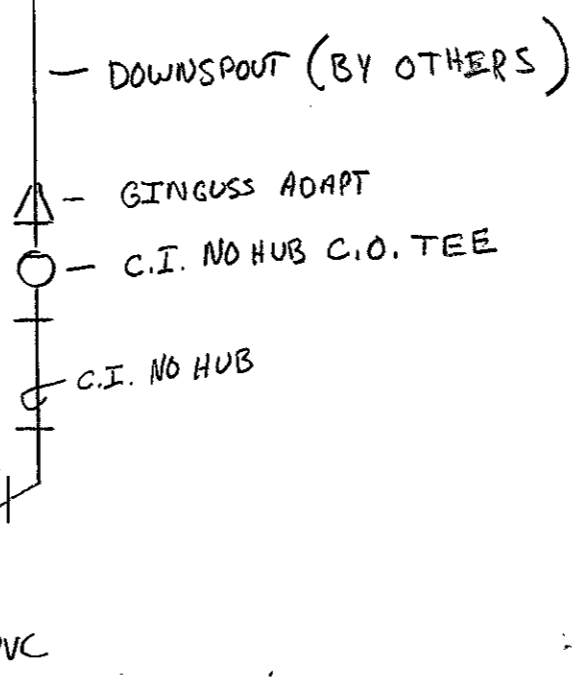 DOWNSPOUT (BY OTHERS)
GINGUSS ADAPT
C.I. NO HUB C.O. TEE
C.I. NO HUB